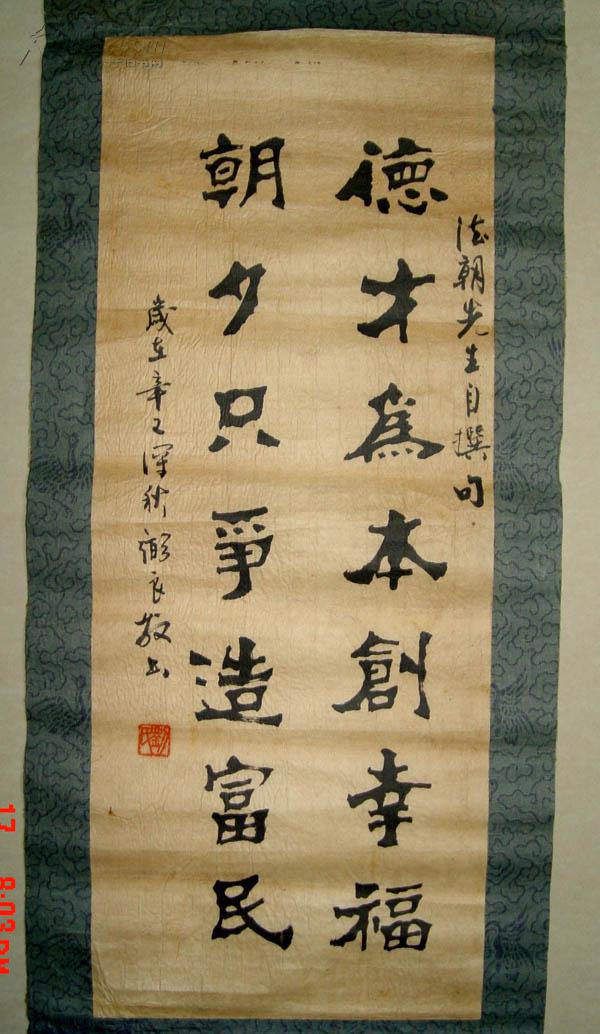 德朝先生自撰句
德才為本創幸福
朝夕只爭造富民
歲在辛乙深秋 良敬书
17 8:03 PM